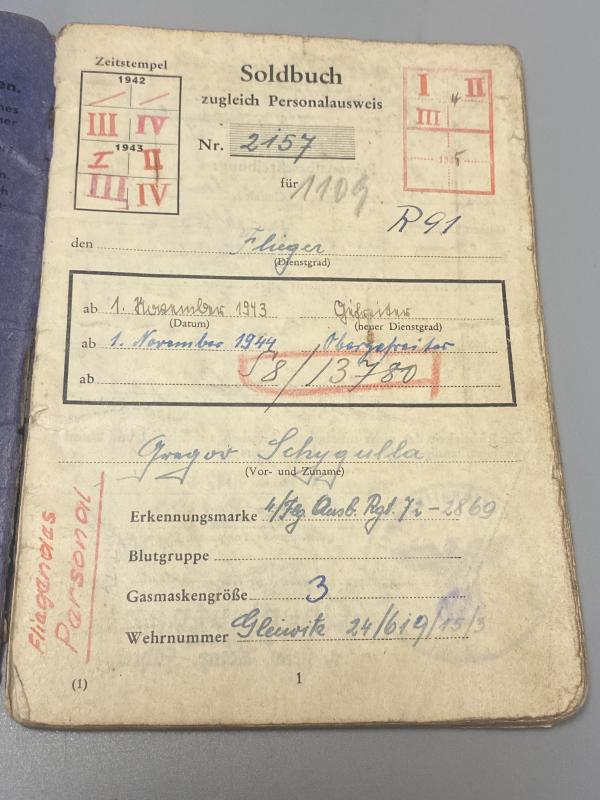 en.
Zeitstempel
1942
III IV
1943
I II
III IV
Soldbuch
zugleich Personalausweis
Nr. 2157
für 1109
I II
4
III
5
R 91
den Flieger
(Dienstgrad)
ab 1. November 1943 Gefreiter
(Datum) (neuer Dienstgrad)
ab 1. November 1944 Obergefreiter
ab 58/13780
Gregor Schygulla
(Vor- und Zuname)
Fliegendes
Personal
Erkennungsmarke 4/Flg. Ausb. Rgt. 72 - 2869
Blutgruppe
Gasmaskengröße 3
Wehrnummer Gleiwitz 24/619/15/3
(1) 1